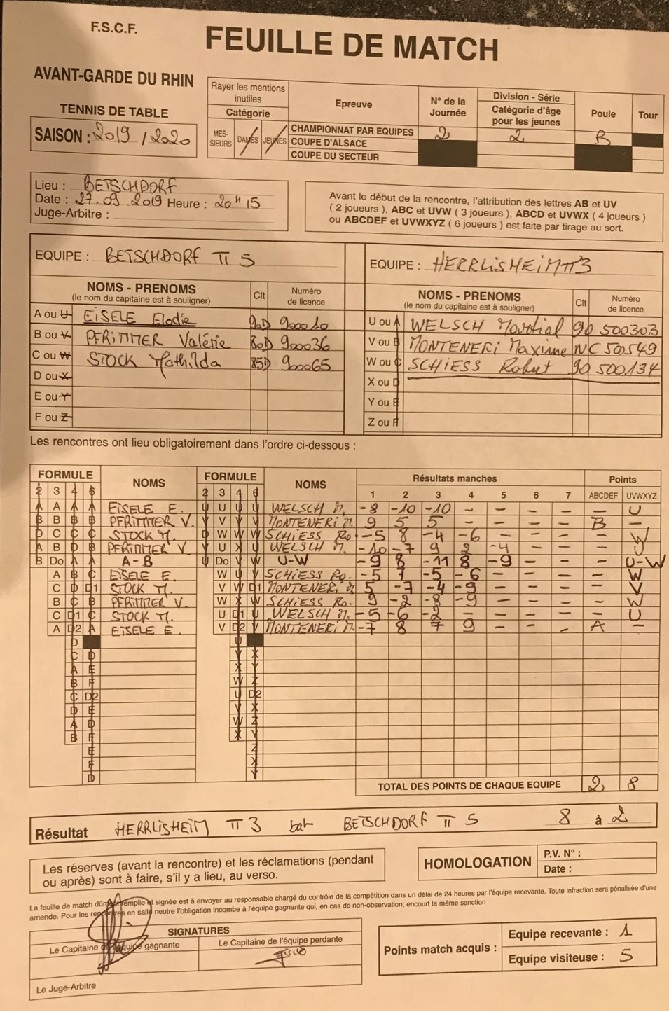 F.S.C.F.
FEUILLE DE MATCH
AVANT-GARDE DU RHIN
TENNIS DE TABLE
SAISON : 2019 / 2020
Rayer les mentions inutiles
Catégorie
MES-SIEURS DAMES JEUNES
Epreuve
CHAMPIONNAT PAR EQUIPES
COUPE D'ALSACE
COUPE DU SECTEUR
N° de la Journée
2
Division - Série
Catégorie d'âge pour les jeunes
2
Poule
B
Tour
Lieu : BETSCHDORF
Date : 27.09.2019 Heure : 20H15
Juge-Arbitre :
Avant le début de la rencontre, l'attribution des lettres AB et UV
( 2 joueurs ), ABC et UVW ( 3 joueurs ), ABCD et UVWX ( 4 joueurs )
ou ABCDEF et UVWXYZ ( 6 joueurs ) est faite par tirage au sort.
EQUIPE : BETSCHDORF π 5
NOMS - PRENOMS
(le nom du capitaine est à souligner)
Clt
Numéro de licence
A ou U EISELE Elodie
B ou V PFRIMMER Valérie 80D 900036
C ou W STOCK Mathilda 85D 900065
D ou X
E ou Y
F ou Z
EQUIPE : HERRLISHEIM π3
NOMS - PRENOMS
(le nom du capitaine est à souligner)
Clt
Numéro de licence
U ou A WELSCH Martial 90 500303
V ou B MONTENERI Maxime NC 50549
W ou C SCHIESS Robert 90 500134
X ou D
Y ou E
Z ou F
Les rencontres ont lieu obligatoirement dans l'ordre ci-dessous :
FORMULE NOMS FORMULE NOMS Résultats manches Points
2 3 4 6 2 3 4 6 1 2 3 4 5 6 7 ABCDEF UVWXYZ
A A A A EISELE E. U U U U WELSCH M. -8 -10 -10 - - - - - U
B B B B PFRIMMER V. V V V V MONTENERI M. 9 5 5 - - - - B -
C C C STOCK M. W W W SCHIESS Ro. -5 8 -4 -6 - - - - W
A B D PFRIMMER V. U X U WELSCH M. -10 -7 9 -4 - - - - U
B Do A - B U Do V U-W -9 8 -11 8 -9 - - - U-W
A B C EISELE E. W U SCHIESS Ro. -5 7 -5 -6 - - - - W
C D D1 STOCK M. V W D1 MONTENERI M. 5 -7 -4 -9 - - - - V
B C B PFRIMMER V. W X SCHIESS Ro. 9 -2 -3 -9 - - - - W
C D1 C STOCK M. U D1 U WELSCH M. -5 -6 -2 - - - - - U
A D2 A EISELE E. V D2 V MONTENERI M. -7 8 7 9 - - - A -
TOTAL DES POINTS DE CHAQUE EQUIPE 2 8
Résultat HERRLISHEIM π 3 bat BETSCHDORF π 5 8 à 2
Les réserves (avant la rencontre) et les réclamations (pendant
ou après) sont à faire, s'il y a lieu, au verso.
HOMOLOGATION
P.V. N° :
Date :
La feuille de match remplie et signée est à envoyer au responsable chargé du contrôle de la compétition dans un délai de 24 heures par l'équipe recevante. Toute infraction sera pénalisée d'une
amende. Pour les en salle neutre l'obligation incombe à l'équipe gagnante qui, en cas de non-observation, encourt la même sanction
SIGNATURES
Le Capitaine de l'équipe gagnante
Le Capitaine de l'équipe perdante
Le Juge-Arbitre
Points match acquis :
Equipe recevante : 1
Equipe visiteuse : 5